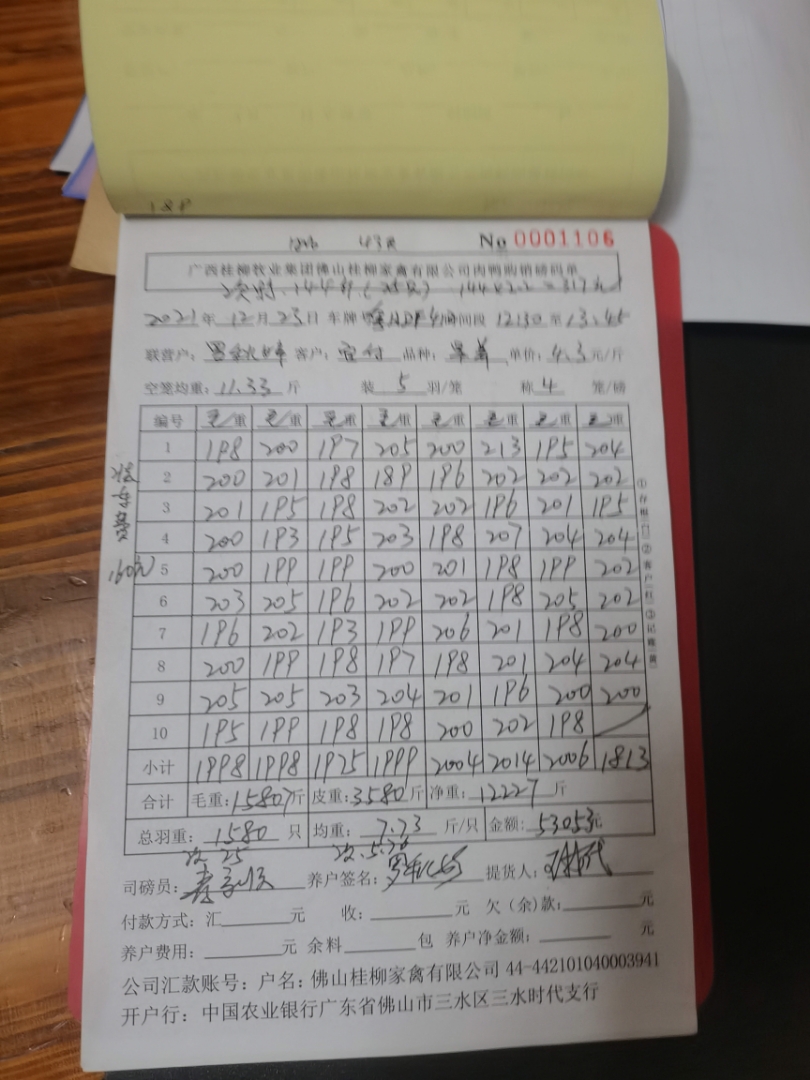 189
43只
No 0001106
广西桂柳牧业集团佛山桂柳家禽有限公司肉鸭购销磅码单
次特.144斤(25只) 144×2.2=317元
2021年12月23日 车牌 时间段 12:30至13:45
联营户: 客户: 品种: 单价:4.3元/斤
空笼均重:11.33斤 装5羽/笼 称4笼/磅
编号 毛/重 毛/重 毛/重 毛/重 毛/重 毛/重 毛/重 毛/重
1 198 200 197 205 200 213 195 204
2 200 201 198 189 196 202 202 202
3 201 195 198 202 202 196 201 195
4 200 193 195 203 198 207 204 204
5 200 199 199 200 201 198 199 202
6 203 205 196 202 202 198 205 202
7 196 202 193 199 206 201 198 200
8 200 199 198 197 198 201 204 204
9 205 205 203 204 201 196 200 200
10 195 199 198 198 200 202 198
小计 1998 1998 1975 1999 2004 2014 2006 1813
合计 毛重:15807斤 皮重:3580斤 净重:12227斤
总羽重:1580只 均重:7.73斤/只 金额:53053元
次 25 次.5.76
司磅员: 养户签名: 提货人:
付款方式:汇 元 收: 元 欠(余)款: 元
养户费用: 元 余料 包 养户净金额: 元
公司汇款账号:户名:佛山桂柳家禽有限公司 44-442101040003941
开户行:中国农业银行广东省佛山市三水区三水时代支行
①存根(白)②客户(红)③记账(黄)